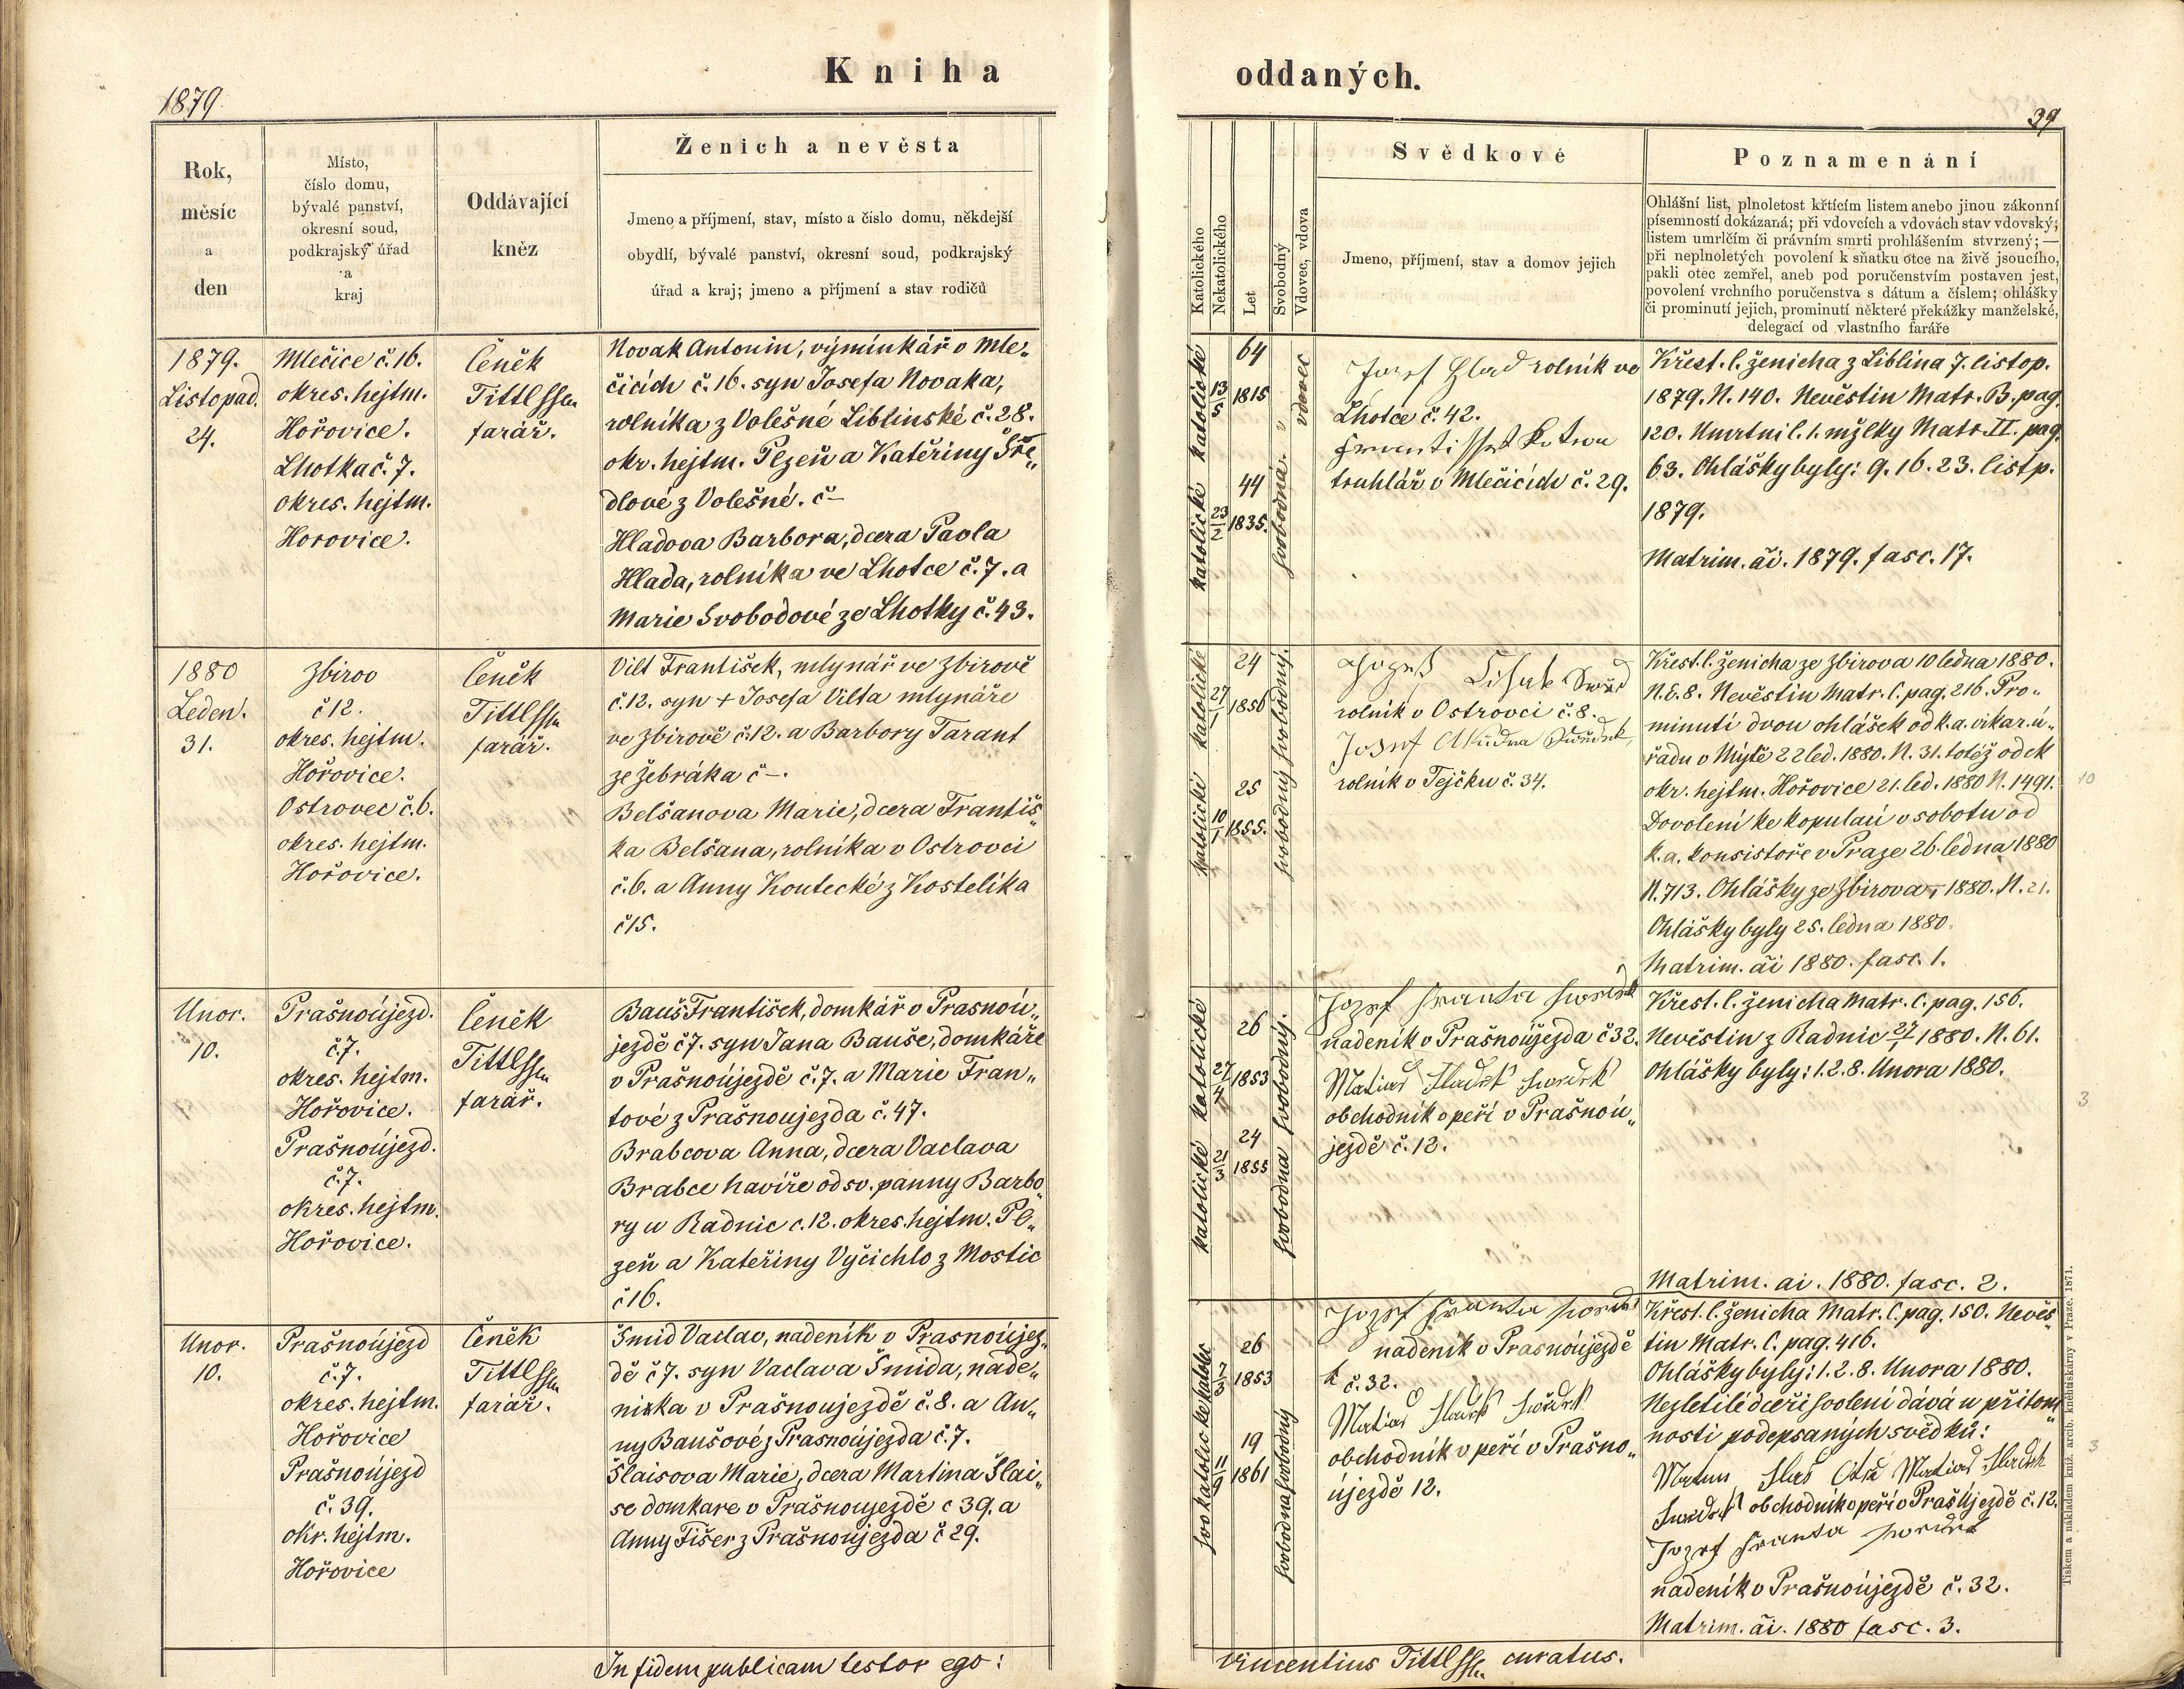 Kniha oddaných.
1879
39
Rok,
měsíc
a
den
Místo,
číslo domu,
bývalé panství,
okresní soud,
podkrajský úřad
a
kraj
Oddávající
kněz
Ženich a nevěsta
Jmeno a příjmení, stav, místo a číslo domu, někdejší
obydlí, bývalé panství, okresní soud, podkrajský
úřad a kraj; jmeno a příjmení a stav rodičů
Katolického
Nekatolického
Let
Svobodný
Vdovec, vdova
Svědkové
Jmeno, příjmení, stav a domov jejich
Poznamenání
Ohlášní list, plnoletost křtícím listem anebo jinou zákonní
písemností dokázaná; při vdovcích a vdovách stav vdovský;
listem umrlčím či právním smrti prohlášením stvrzený; —
při neplnoletých povolení k sňatku otce na živě jsoucího,
pakli otec zemřel, aneb pod poručenstvím postaven jest,
povolení vrchního poručenstva s dátum a číslem; ohlášky
či prominutí jejich, prominutí některé překážky manželské,
delegací od vlastního faráře
1879.
Listopad.
24.
Mlečice č. 16.
okres. hejtm.
Hořovice.
Lhotka č. 7.
okres. hejtm.
Horovice.
Čeněk
Tittl
farář.
Novak Antonin, výminkář v Mle„
čicích č. 16. syn Josefa Novaka,
rolníka z Volešné Liblinské č. 28.
okr. hejtm. Plzeň a Kateřiny Šře„
dlové z Volešné. č —
Hladova Barbora, dcera Pavla
Hlada, rolníka ve Lhotce č. 7. a
Marie Svobodové ze Lhotky č. 43.
katolické
13/5
64
1815
vdovec
katolické
23/2
44
1835.
svobodná.
Josef Hlad rolník ve
Lhotce č. 42.
truhlář v Mlečicích č. 29.
Křest. l. ženicha z Liblina 7. listop.
1879. N. 140. Nevěstin Matr. B. pag.
120. Umrtni l. 1. mžlky Matr. II. pag.
63. Ohlášky byly: 9. 16. 23. listp.
1879.
Matrim. ãi. 1879. fasc. 17.
1880
Leden.
31.
Zbirov
č 12.
okres. hejtm.
Hořovice.
Ostrovec č. 6.
okres. hejtm.
Hořovice.
Čeněk
Tittl
farář.
Vilt František, mlynář ve Zbirově
č. 12. syn + Josefa Vilta mlynáře
ve Zbirově č. 12. a Barbory Tarant
ze Žebráka č —.
Belšanova Marie, dcera Františ„
ka Belšana, rolníka v Ostrovci
č. 6. a Anny Koutecké z Kostelíka
č 15.
katolické
27/1
24
1856
svobodný.
katolické
10/1
25
1855.
svobodný
rolník v Ostrovci č. 8.
rolník v Tejčku č. 34.
Křest. l. ženicha ze Zbirova 10 ledna 1880.
N. E. 8. Nevěstin Matr. C. pag. 216. Pro„
minutí dvou ohlášek od k. a. vikar. ú„
řadu v Mýtě 22 led. 1880. N. 31. totéž od ck
okr. hejtm. Hořovice 21. led. 1880 N. 1491.
Dovolení ke kopulaci v sobotu od
k. a. konsistoře v Praze 26. ledna 1880
N. 713. Ohlášky ze Zbirova 1880. N. 21.
Ohlášky byly 25. ledna 1880.
Matrim. ãi 1880. fasc. 1.
10
Unor.
10.
Prašnoújezd.
č. 7.
okres. hejtm.
Hořovice.
Prašnoújezd.
č. 7.
okres. hejtm.
Hořovice.
Čeněk
Tittl
farář.
Bauš František, domkář v Prasnoú„
jezdě č 7. syn Jana Bauše, domkáře
v Prašnoújezdě č. 7. a Marie Fran„
tové z Prašnoujezda č. 47.
Brabcova Anna, dcera Vaclava
Brabce havíře od sv. panny Barbo„
ry u Radnic c. 12. okres. hejtm. Pl„
zeň a Kateřiny Vyčichlo z Mostic
č 16.
katolické
27/4
26
1853
svobodný.
katolické
21/3
24
1855
svobodna
Jozef Franta
nadeník v Prašnoújezda č 32.
Matias Hladek
obchodník v peří v Prašnoú„
jezdě č. 12.
Křest. l. ženicha Matr. C. pag. 156.
Nevěstin z Radnic 27/1 1880. N. 61.
Ohlášky byly: 1. 2. 8. Unora 1880.
Matrim. ai. 1880. fasc. 2.
3
Unor.
10.
Prašnoújezd
č. 7.
okres. hejtm.
Hořovice
Prašnoújezd
č. 39.
okr. hejtm.
Hořovice
Čeněk
Tittl
farář.
Šmid Vaclav, nadeník v Prasnoújez„
dě č 7. syn Vaclava Šmida, nade„
nička v Prašnoujezdě č. 8. a An„
ny Baušové z Prasnoújezda č. 7.
Šlaisova Marie, dcera Martina Šlai„
se domkare v Prašnoujezdě c 39. a
Anny Fišer z Prašnoujezda č 29.
26
1853
svobodný
katolické
19
1861
svobodna
Jozef Franta
nadeník v Prasnoújezdě
č. 32.
Matias Hladek
obchodník v peří v Prašno„
újezdě 12.
Křest. l. ženicha Matr. C. pag. 150. Nevěs„
tin Matr. C. pag. 416.
Ohlášky byly: 1. 2. 8. Unora 1880.
Nezletilé dceři svolení dává u přitom„
nosti podepsaných svědků:
Matias Hladek
obchodník v peří v Praš Újezdě č. 12.
Jozef Franta
nadeník v Prašnoújezdě č. 32.
Matrim. ãi. 1880 fasc. 3.
3
In fidem publicam testor ego:
Vincentius Tittl curatus.
Tiskem a nákladem kníž. arcib. knihtiskárny v Praze. 1871.